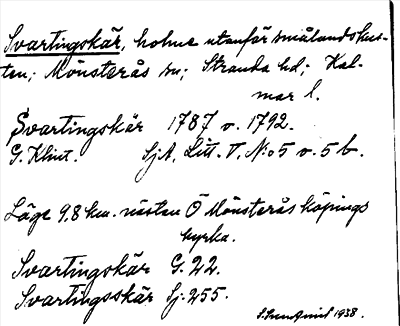 Svartingskär, holme utanför smålandskus-
ten; Mönsterås sn; Stranda hd; Kal-
mar l.
Svartingskär 1787 o. 1792.
G. Klint. SjA, Litt. V, No 5 o. 5 b.
Läge 9,8 km. nästan Ö Mönsterås köpings
kyrka.
Svartingskär G. 22.
Svartingsskär Sj. 255.
1938.